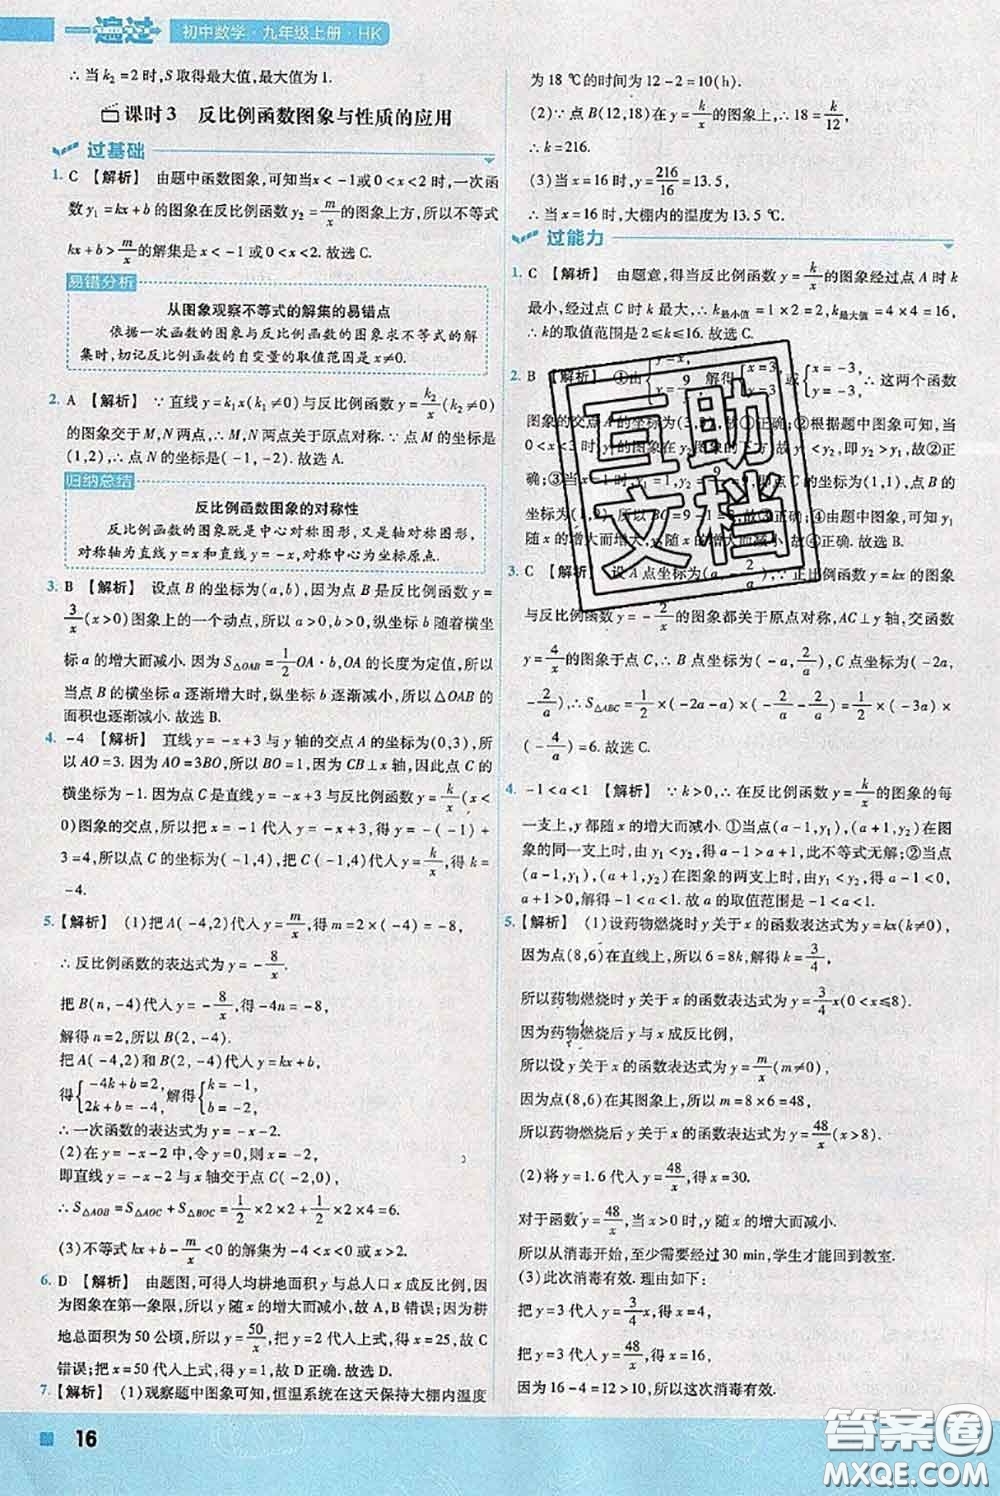 一遍过 初中数学·九年级上册·HK
∴ 当 k₂ = 2 时, S 取得最大值, 最大值为 1.
课时 3 反比例函数图象与性质的应用
过基础
1. C 【解析】 由题中函数图象, 可知当 x < -1 或 0 < x < 2 时, 一次函
数 y₁ = kx + b 的图象在反比例函数 y₂ = m/x 的图象上方, 所以不等式
kx + b > m/x 的解集是 x < -1 或 0 < x < 2. 故选 C.
易错分析
从图象观察不等式的解集的易错点
依据一次函数的图象与反比例函数的图象求不等式的解
集时, 切记反比例函数的自变量的取值范围是 x ≠ 0.
2. A 【解析】 ∵ 直线 y = k₁x(k₁ ≠ 0) 与反比例函数 y = k₂/x (k₂ ≠ 0)
的图象交于 M, N 两点, ∴ M, N 两点关于原点对称. ∵ 点 M 的坐标是
(1,2), ∴ 点 N 的坐标是 (-1, -2). 故选 A.
归纳总结
反比例函数图象的对称性
反比例函数的图象既是中心对称图形, 又是轴对称图形,
对称轴为直线 y = x 和直线 y = -x, 对称中心为坐标原点.
3. B 【解析】 设点 B 的坐标为 (a, b), 因为点 B 是反比例函数 y =
3/x (x > 0) 图象上的一个动点, 所以 a > 0, b > 0, 纵坐标 b 随着横坐
标 a 的增大而减小. 因为 S△OAB = 1/2 OA · b, OA 的长度为定值, 所以
当点 B 的横坐标 a 逐渐增大时, 纵坐标 b 逐渐减小, 所以 △OAB 的
面积也逐渐减小. 故选 B.
4. -4 【解析】 直线 y = -x + 3 与 y 轴的交点 A 的坐标为 (0,3), 所
以 AO = 3. 因为 AO = 3BO, 所以 BO = 1. 因为 CB ⊥ x 轴, 因此点 C 的
横坐标为 -1. 因为点 C 是直线 y = -x + 3 与反比例函数 y = k/x (x <
0) 图象的交点, 所以当 x = -1 时, y = -x + 3 = -(-1) +
3 = 4, 所以点 C 的坐标为 (-1,4), 把 C(-1,4) 代入 y = k/x, 得 k =
-4.
5. 【解析】 (1) 把 A(-4,2) 代入 y = m/x, 得 m = 2 × (-4) = -8,
∴ 反比例函数的表达式为 y = -8/x.
把 B(n, -4) 代入 y = -8/x, 得 -4n = -8,
解得 n = 2, 所以 B(2, -4).
把 A(-4,2) 和 B(2, -4) 代入 y = kx + b,
得 { -4k + b = 2, 2k + b = -4, 解得 { k = -1, b = -2.
∴ 一次函数的表达式为 y = -x - 2.
(2) 在 y = -x - 2 中, 令 y = 0, 则 x = -2,
即直线 y = -x - 2 与 x 轴交于点 C(-2,0),
∴ S△AOB = S△AOC + S△BOC = 1/2 × 2 × 2 + 1/2 × 2 × 4 = 6.
(3) 不等式 kx + b - m/x < 0 的解集为 -4 < x < 0 或 x > 2.
6. D 【解析】 由题图, 可得人均耕地面积 y 与总人口 x 成反比例, 因
为图象在第一象限, 所以 y 随 x 的增大而减小, 故 A, B 错误; 因为耕
地总面积为 50 公顷, 所以 y = 50/x, 把 y = 2 代入上式, 得 x = 25, 故 C
错误; 把 x = 50 代入上式, 得 y = 1, 故 D 正确. 故选 D.
7. 【解析】 (1) 观察题中图象可知, 恒温系统在这天保持大棚内温度
为 18 ℃ 的时间为 12 - 2 = 10(h).
(2) ∵ 点 B(12,18) 在 y = k/x 的图象上, ∴ 18 = k/12,
∴ k = 216.
(3) 当 x = 16 时, y = 216/16 = 13.5,
∴ 当 x = 16 时, 大棚内的温度为 13.5 ℃.
过能力
1. C 【解析】 由题意, 得当反比例函数 y = k/x 的图象经过点 A 时 k
最小, 经过点 C 时 k 最大, ∴ k最小值 = 1 × 2 = 2, k最大值 = 4 × 4 = 16,
∴ k 的取值范围是 2 ≤ k ≤ 16. 故选 C.
2. B 【解析】 ①由 { y = x, 9 解得 { x = 3, y = 3, 或 { x = -3, y = -3, ∴ 这两个函数
图象的交点 A 的坐标为 (3,3), 故①正确; ②根据题中图象可知, 当
0 < x < 3 时, y₁ 的图象在 y₂ 图象的下方, 故 y₁ < y₂, 即 y₂ > y₁, 故②错误;
所以 BC = 9 - 1 = 8, 故③正确; ④由题中图象可知, y₁
随 x 的增大而增大, y₂ 随 x 的增大而减小, 故④正确. 故选 B.
3. C 【解析】 设 A 点坐标为 (a, -2/a), ∵ 正比例函数 y = kx 的图象
与反比例函数 y = -2/x 的图象都关于原点对称, AC ⊥ y 轴, 交函数
y = 4/x 的图象于点 C, ∴ B 点坐标为 (-a, 2/a), C 点坐标为 (-2a,
-2/a), ∴ S△ABC = 1/2 × (-2a - a) × (-2/a - 2/a) = 1/2 × (-3a) ×
(-4/a) = 6. 故选 C.
4. -1 < a < 1 【解析】 ∵ k > 0, ∴ 在反比例函数 y = k/x 的图象的每
一支上, y 都随 x 的增大而减小. ①当点 (a-1, y₁), (a+1, y₂) 在图
象的同一支上时, 由 y₁ < y₂, 得 a - 1 > a + 1, 此不等式无解; ②当点
(a-1, y₁), (a+1, y₂) 在图象的两支上时, 由 y₁ < y₂, 得 a - 1 < 0,
a + 1 > 0, 解得 -1 < a < 1. 故 a 的取值范围是 -1 < a < 1.
5. 【解析】 (1) 设药物燃烧时 y 关于 x 的函数表达式为 y = kx(k ≠ 0),
因为点 (8,6) 在直线上, 所以 6 = 8k, 解得 k = 3/4,
所以药物燃烧时 y 关于 x 的函数表达式为 y = 3/4 x(0 < x ≤ 8).
因为药物燃烧后 y 与 x 成反比例,
所以设 y 关于 x 的函数表达式为 y = m/x (m ≠ 0),
因为点 (8,6) 在其图象上, 所以 m = 8 × 6 = 48,
所以药物燃烧后 y 关于 x 的函数表达式为 y = 48/x (x > 8).
(2) 将 y = 1.6 代入 y = 48/x, 得 x = 30.
对于函数 y = 48/x, y 随 x 的增大而减小.
所以从消毒开始, 至少需要经过 30 min, 学生才能回到教室.
(3) 此次消毒有效. 理由如下:
把 y = 3 代入 y = 3/4 x, 得 x = 4,
把 y = 3 代入 y = 48/x, 得 x = 16,
因为 16 - 4 = 12 > 10, 所以这次消毒有效.
互助
文档
16
答案圈
MXQE.COM